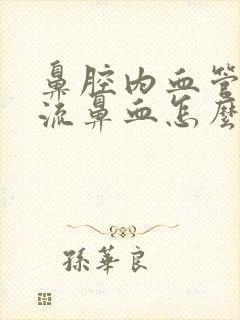 鼻腔内血管
流鼻血怎麼
孫華良